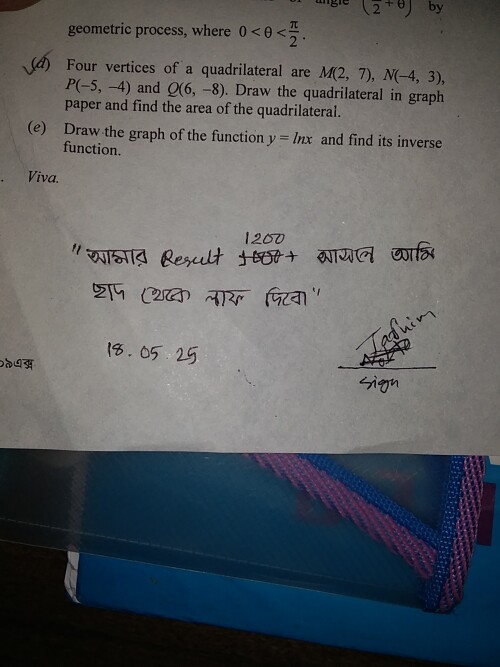 angle (π/2 + θ) by
geometric process, where 0 < θ < π/2.
(d) Four vertices of a quadrilateral are M(2, 7), N(−4, 3),
P(−5, −4) and Q(6, −8). Draw the quadrilateral in graph
paper and find the area of the quadrilateral.
(e) Draw the graph of the function y = lnx and find its inverse
function.
Viva.
1200
"আমার Result + আসলে আমি
ছাদ থেকে লাফ দিবো"
18.05.25
Tashim
sign
০৯এক্স